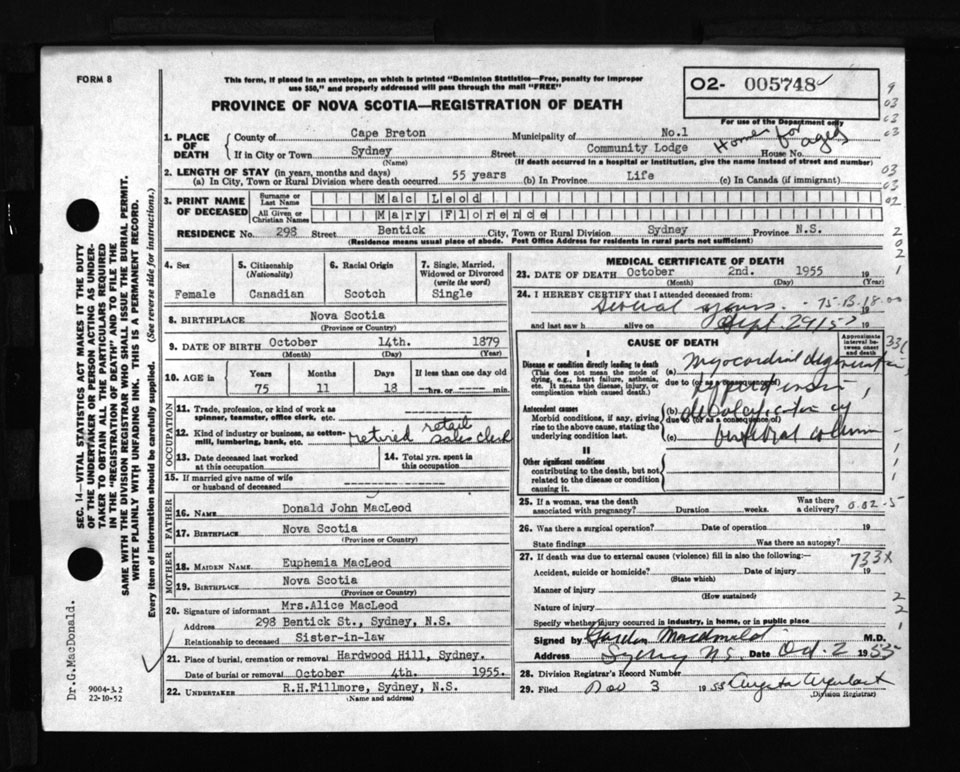 FORM 8
This form, if placed in an envelope, on which is printed "Dominion Statistics—Free, penalty for improper
use $50," and properly addressed will pass through the mail "FREE"
PROVINCE OF NOVA SCOTIA—REGISTRATION OF DEATH
O2- 005748
For use of the Department only
1. PLACE OF DEATH
County of Cape Breton Municipality of No.1
Home for aged
If in City or Town Sydney Street Community Lodge House No.
(Name) (If death occurred in a hospital or institution, give the name instead of street and number)
2. LENGTH OF STAY (in years, months and days)
(a) In City, Town or Rural Division where death occurred 55 years (b) In Province Life (c) In Canada (if immigrant)
3. PRINT NAME OF DECEASED
Surname or Last Name Mac Leod
All Given or Christian Names Mary Florence
RESIDENCE No. 298 Street Bentick City, Town or Rural Division Sydney Province N.S.
(Residence means usual place of abode. Post Office Address for residents in rural parts not sufficient)
4. Sex Female
5. Citizenship (Nationality) Canadian
6. Racial Origin Scotch
7. Single, Married, Widowed or Divorced (write the word) Single
8. BIRTHPLACE Nova Scotia
(Province or Country)
9. DATE OF BIRTH October 14th. 1879
(Month) (Day) (Year)
10. AGE in Years Months Days If less than one day old
75 11 18 hrs. or min.
OCCUPATION
11. Trade, profession, or kind of work as
spinner, teamster, office clerk, etc.
12. Kind of industry or business, as cotton-
mill, lumbering, bank, etc. retired retail sales clerk
13. Date deceased last worked
at this occupation
14. Total yrs. spent in
this occupation
15. If married give name of wife
or husband of deceased
FATHER
16. NAME Donald John MacLeod
17. BIRTHPLACE Nova Scotia
(Province or Country)
MOTHER
18. MAIDEN NAME Euphemia MacLeod
19. BIRTHPLACE Nova Scotia
(Province or Country)
20. Signature of informant Mrs.Alice MacLeod
Address 298 Bentick St., Sydney, N.S.
Relationship to deceased Sister-in-law
21. Place of burial, cremation or removal Hardwood Hill, Sydney.
Date of burial or removal October 4th 1955.
22. UNDERTAKER R.H.Fillmore, Sydney, N.S.
(Name and address)
MEDICAL CERTIFICATE OF DEATH
23. DATE OF DEATH October 2nd. 1955 19
(Month) (Day) (Year)
24. I HEREBY CERTIFY that I attended deceased from:
Several years 19
and last saw h alive on Sept. 29/55 19
CAUSE OF DEATH
Approximate interval between onset and death
I
Disease or condition directly leading to death
(This does not mean the mode of
dying, e.g., heart failure, asthenia,
etc. It means the disease, injury, or
complication which caused death.)
(a) Myocardial degeneration
due to (or as a consequence of)
Antecedent causes
Morbid conditions, if any, giving
rise to the above cause, stating the
underlying condition last.
(b) decalcification of
due to (or as a consequence of)
(c) vertebral column
II
Other significant conditions
contributing to the death, but not
related to the disease or condition
causing it.
25. If a woman, was the death
associated with pregnancy? Duration weeks. Was there
a delivery?
26. Was there a surgical operation? Date of operation 19
State findings Was there an autopsy?
27. If death was due to external causes (violence) fill in also the following:—
733X
Accident, suicide or homicide? Date of injury 19
(State which)
Manner of injury
(How sustained)
Nature of injury
Specify whether injury occurred in industry, in home, or in public place
Signed by Gordon Macdonald M.D.
Address Sydney N.S. Date Oct. 2 1955
28. Division Registrar's Record Number
29. Filed Nov 3 1955
(Division Registrar)
SEC. 14—VITAL STATISTICS ACT MAKES IT THE DUTY
OF THE UNDERTAKER OR PERSON ACTING AS UNDER-
TAKER TO OBTAIN ALL THE PARTICULARS REQUIRED
IN THE "REGISTRATION OF DEATH" AND TO FILE THE
SAME WITH THE DIVISION REGISTRAR WHO SHALL ISSUE THE BURIAL PERMIT.
WRITE PLAINLY WITH UNFADING INK. THIS IS A PERMANENT RECORD.
Every item of information should be carefully supplied. (See reverse side for instructions.)
Dr.G.MacDonald.
9004-3.2
22-10-52